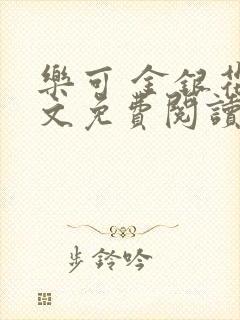 樂可 金銀花
文免費閱讀
步鈴吟